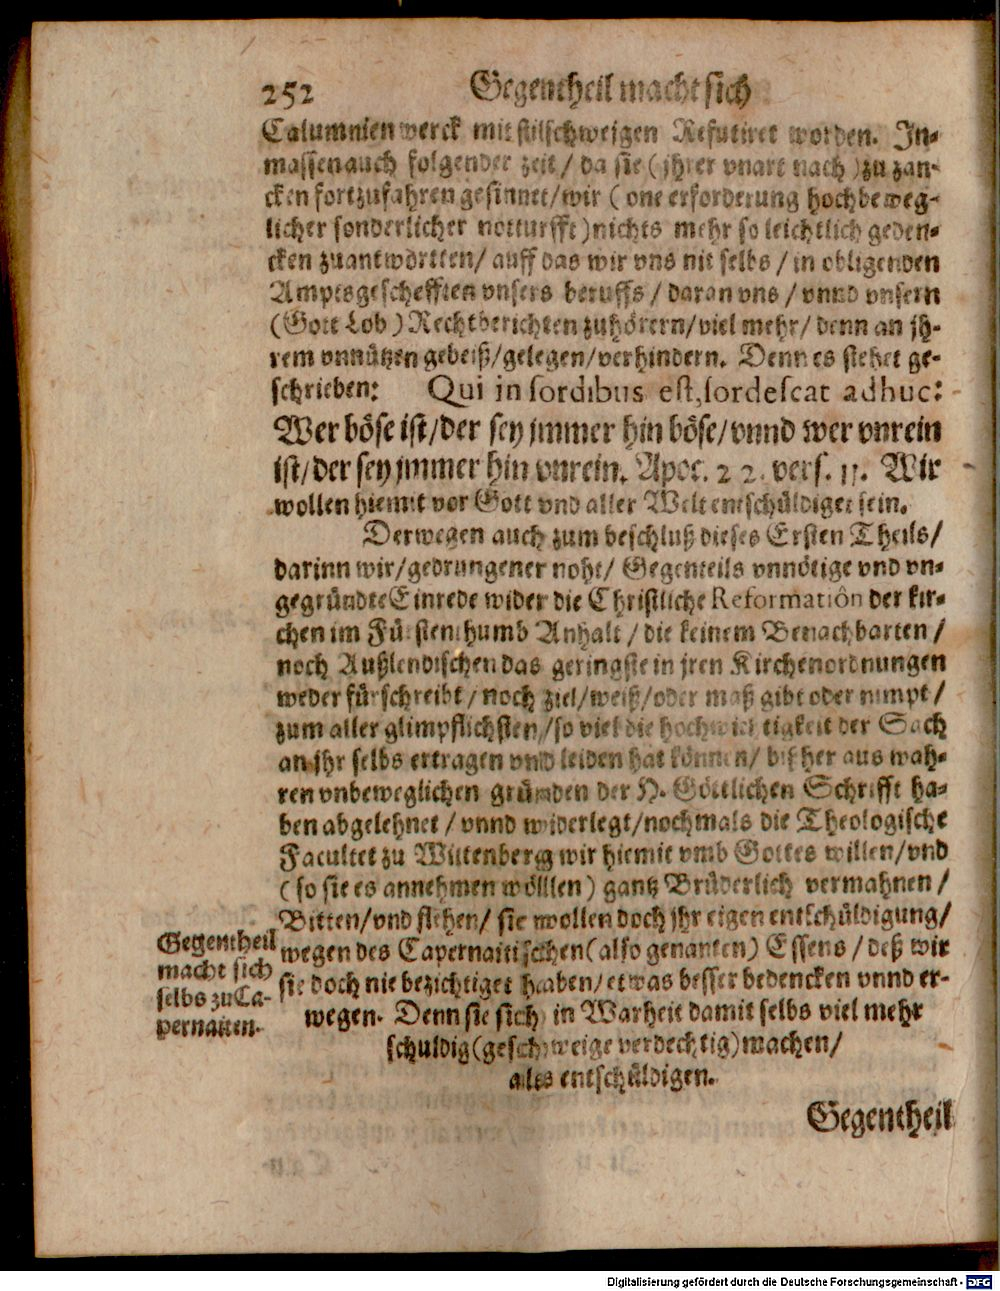 252 Gegentheil macht sich
Calumnien werck mit stilschweigen Refutiret worden. In-
massen auch folgender zeit / da sie ( jhrer vnart nach ) zu zan-
cken fortzufahren gesinnet/wir ( one erforderung hochbeweg-
licher sonderlicher notturfft ) nichts mehr so leichtlich geden-
cken zuantwortten/ auff das wir vns nit selbs / in obligenden
Amptsgeschefften vnsers beruffs / daran vns / vnnd vnsern
(Gott Lob ) Rechtberichten zuhörern/viel mehr/ denn an jh-
rem vnnützen gebeiß/gelegen/verhindern. Denn es stehet ge-
schrieben: Qui in sordibus est, sordescat adhuc:
Wer böse ist/der sey jmmer hin böse/vnnd wer vnrein
ist/der sey jmmer hin vnrein. Apoc. 22. vers. 11. Wir
wollen hiemit vor Gott vnd aller Welt entschüldiget sein.
Derwegen auch zum beschluß dieses Ersten Theils/
darinn wir/gedrungener noht/ Gegenteils vnnötige vnd vn-
gegründte Einrede wider die Christliche Reformation der kir-
chen im Fürstenthumb Anhalt / die keinem Benachbarten /
noch Außlendischen das geringste in jren Kirchenordnungen
weder fürschreibt / noch ziel/weiß/oder maß gibt oder nimpt /
zum aller glimpflichsten/so viel die hochwichtigkeit der Sach
an jhr selbs ertragen vnd leiden hat können/ bißher aus wah-
ren vnbeweglichen gründen der H. Göttlichen Schrifft ha-
ben abgelehnet / vnnd widerlegt/nochmals die Theologische
Facultet zu Wittenbergg wir hiemit vmb Gottes willen/vnd
( so sie es annehmen wölllen ) gantz Brüderlich vermahnen /
Bitten/vnd flehen/ sie wollen doch jhr eigen entschüldigung/
wegen des Capernaitischen (also genanten) Essens / deß wir
sie doch nie bezichtiget haben/etwas besser bedencken vnnd er-
wegen. Denn sie sich in Warheit damit selbs viel mehr
schuldig (geschweige verdechtig) machen/
als entschüldigen.
Gegentheil
macht sich
selbs zu Ca-
pernaiten.
Gegentheil
Digitalisierung gefördert durch die Deutsche Forschungsgemeinschaft - DFG